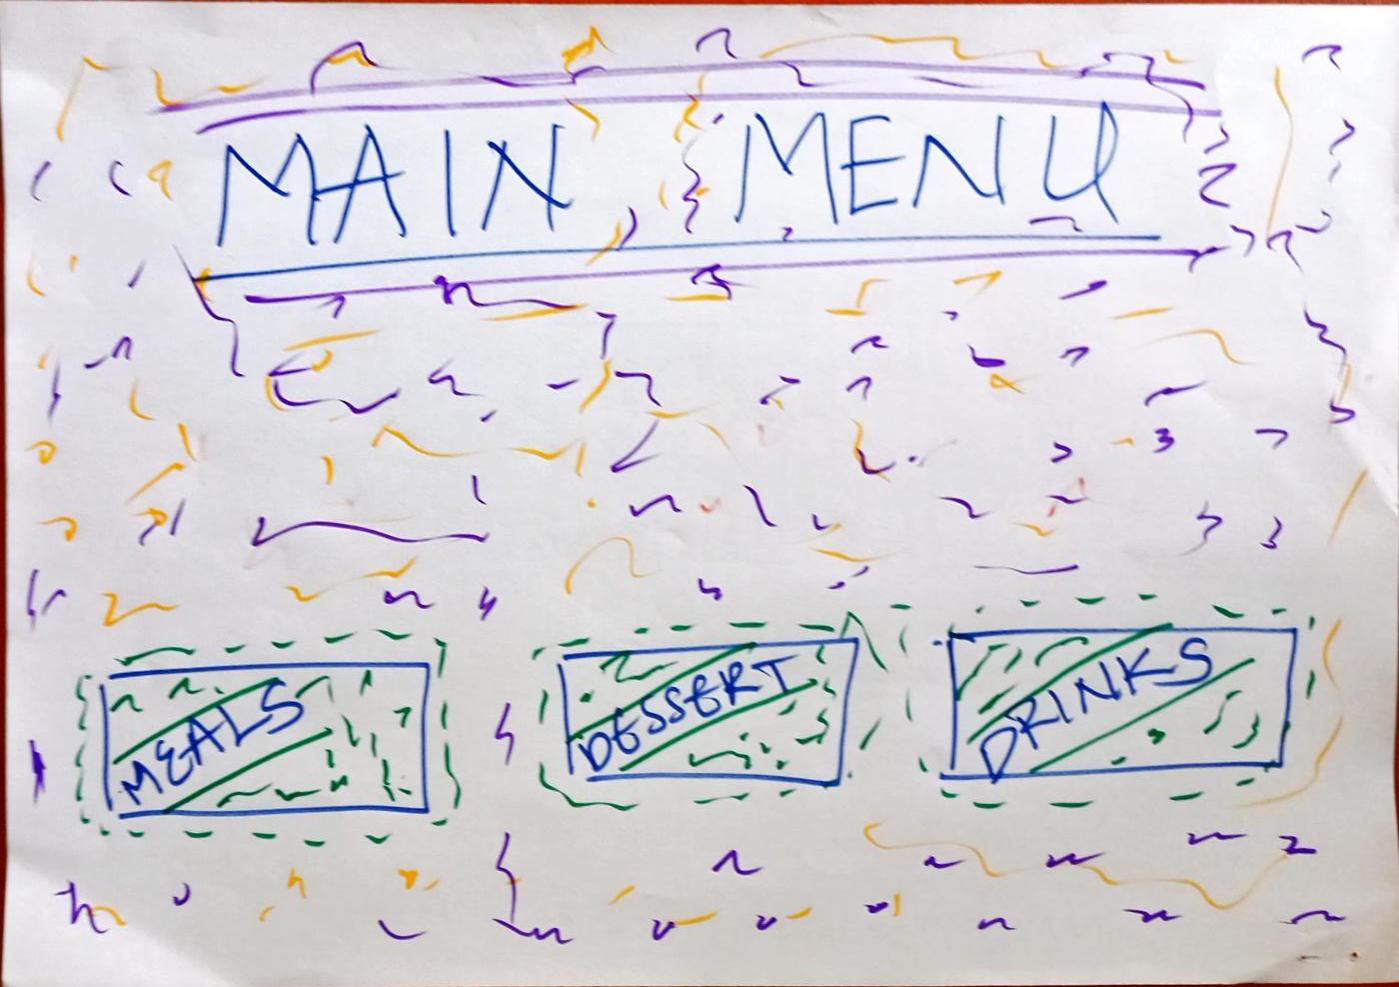 MAIN MENU
MEALS
DESSERT
DRINKS